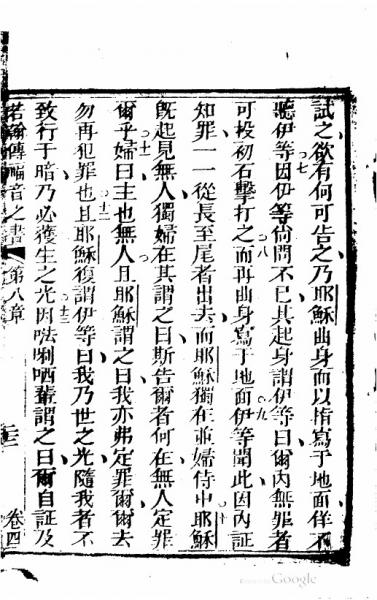 試之欲有何可告之乃耶穌曲身而以指寫于地面佯不
七
聽伊等因伊等尙問不已其起身謂伊等曰爾內無罪者
八 九
可投初石擊打之而再曲身寫于地面伊等聞此因內証
知罪一一從長至尾者出去而耶穌獨在並婦侍中耶穌
十
旣起見無人獨婦在其謂之曰斯告爾者何在無人定罪
十一
爾乎婦曰主也無人且耶穌謂之曰我亦弗定罪爾爾去
十二
勿再犯罪也且耶穌復謂伊等曰我乃世之光隨我者不
十三
致行于暗乃必獲生之光因𠵽唎哂輩謂之曰爾自証及
若翰傳福音之書 第八章 卷四
Google